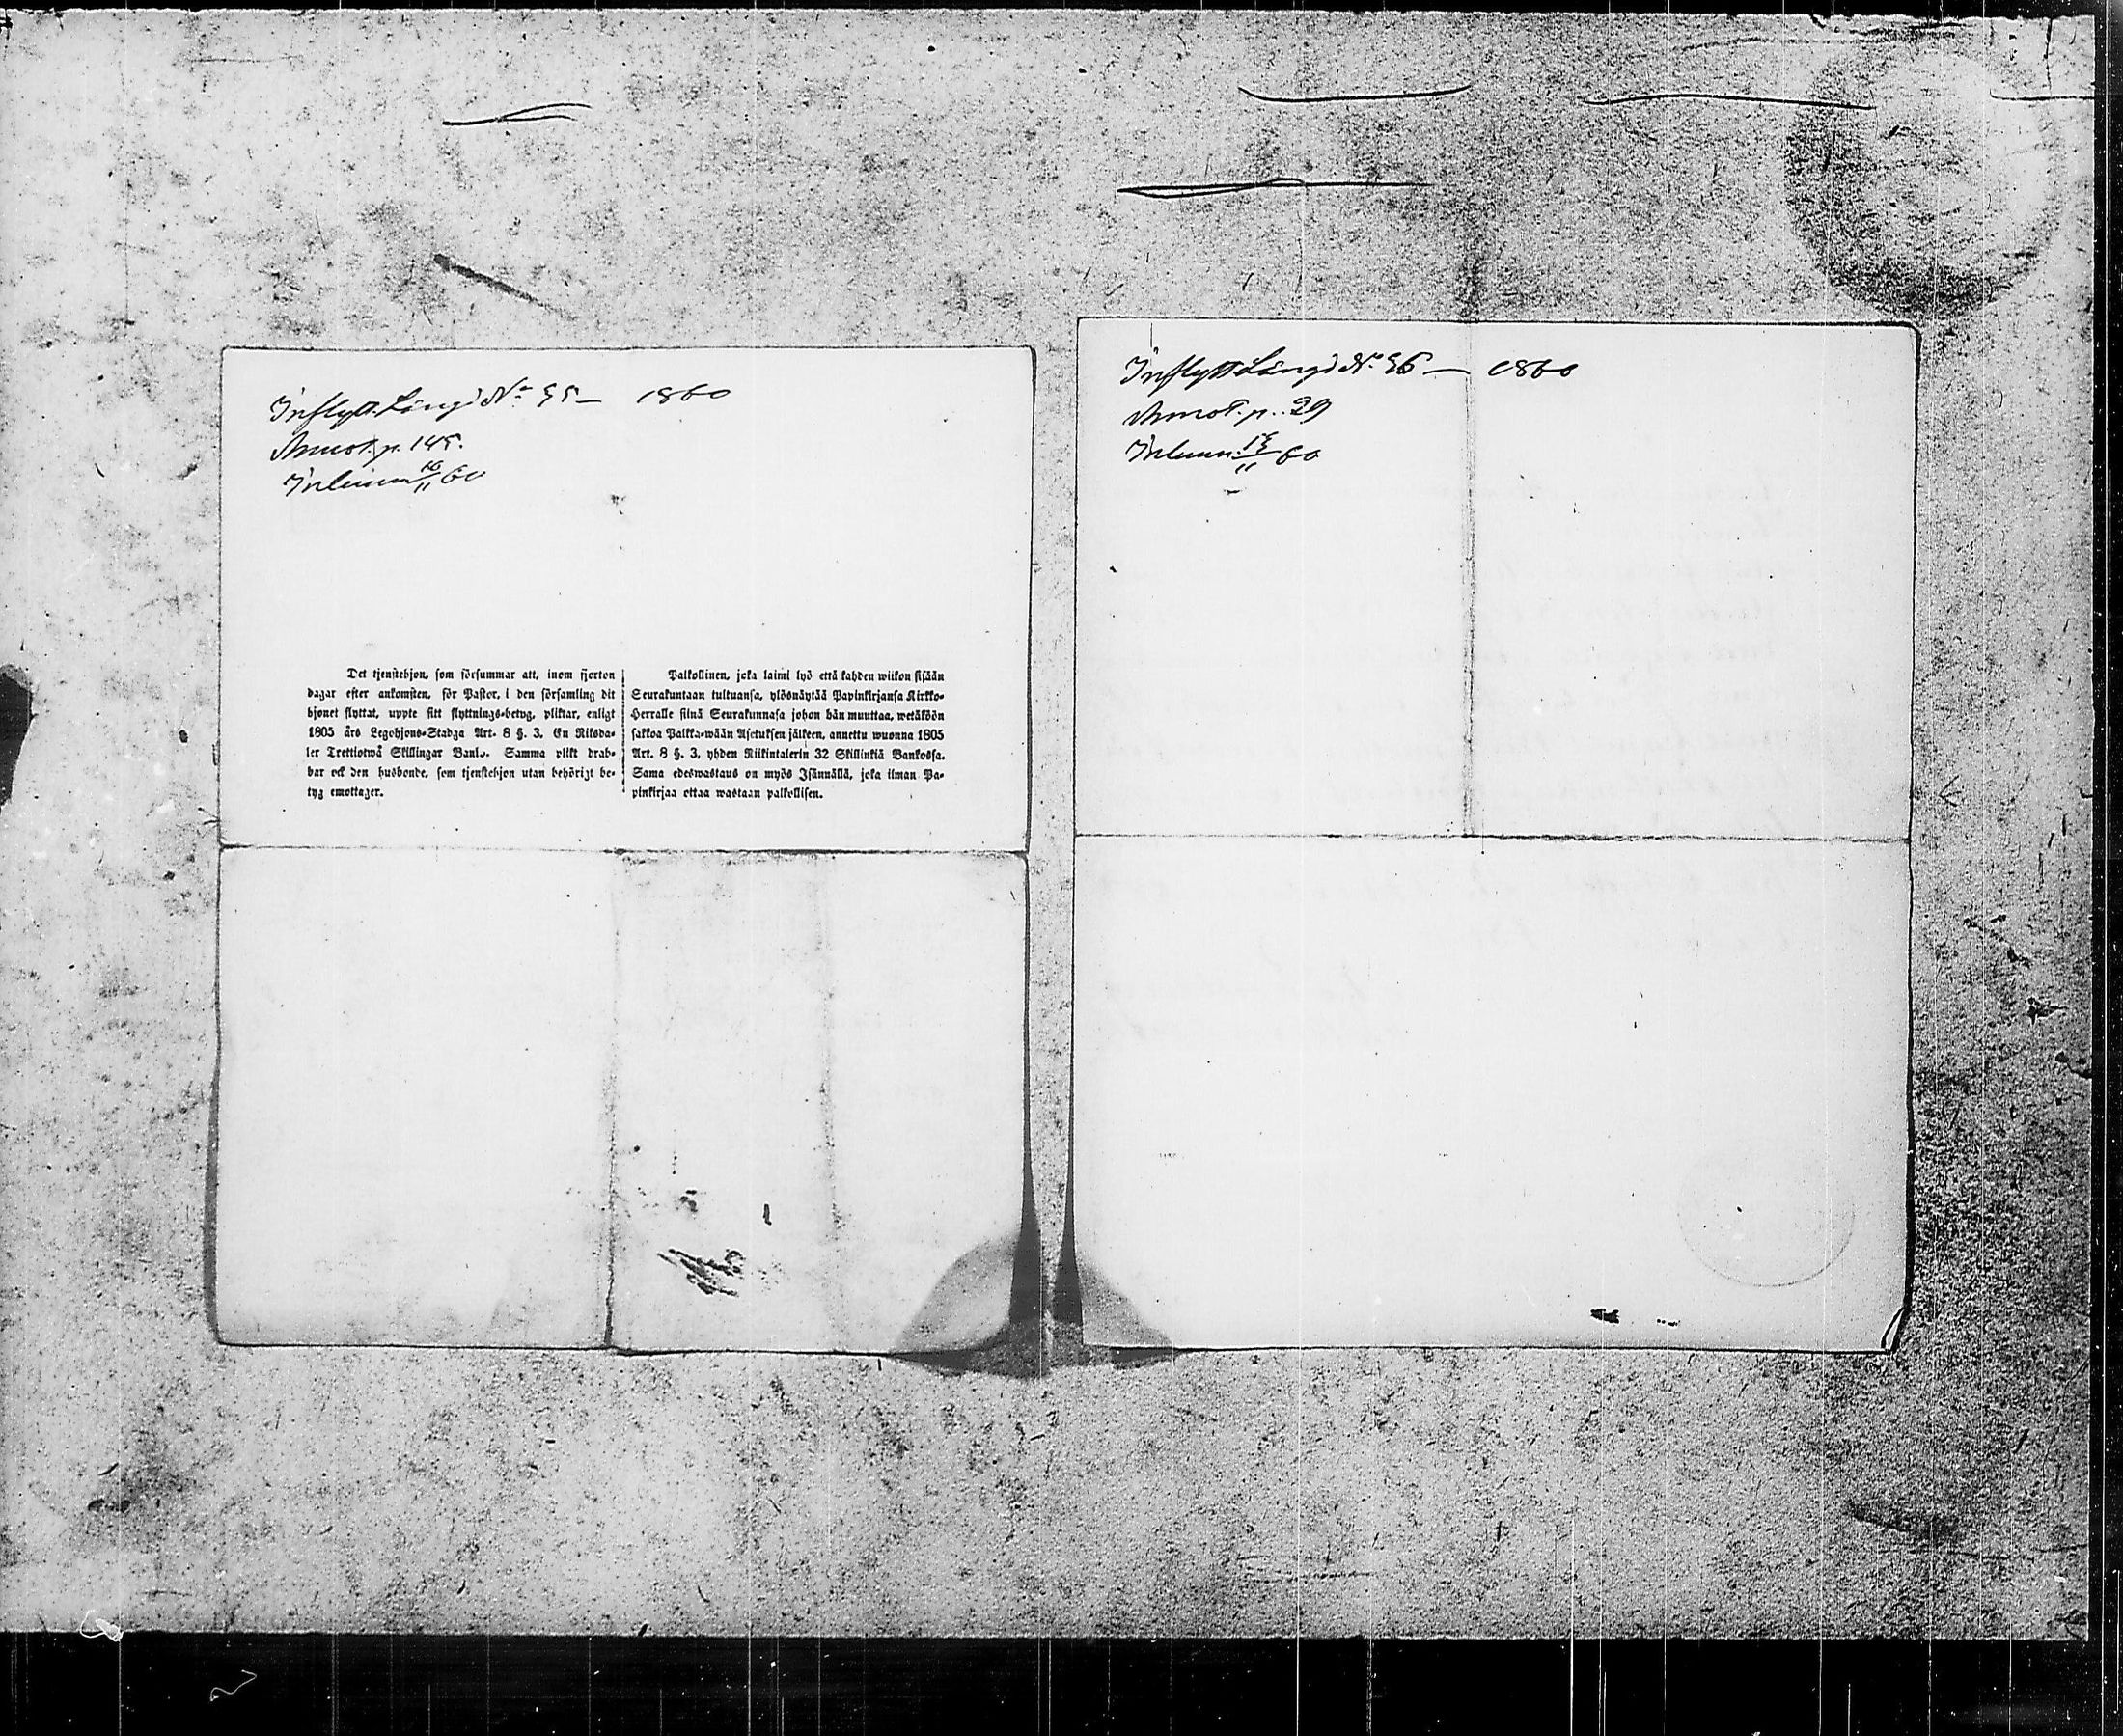 Inflytt. Längd No 55 — 1860
Annot. p. 145.
Inlemn 16/11 60
Det tjenstehjon, som försummar att, inom fjorton
dagar efter ankomsten, för Pastor, i den församling dit
hjonet flyttat, uppte sitt flyttnings-betyg, pliktar, enligt
1805 års Legohjons-Stadga Art. 8 §. 3. En Riksda-
ler Trettiotwå Skillingar Banko. Samma plikt drab-
bar ock den husbonde, som tjenstehjon utan behörigt be-
tyg emottager.
Palkollinen, joka laimi lyö että kahden wiikon sisään
Seurakuntaan tultuansa, ylösnäytää Papinkirjansa Kirkko-
Herralle siinä Seurakunnasa johon hän muuttaa, wetäköön
sakkoa Palkka-wään Asetuksen jälkeen, annettu wuonna 1805
Art. 8 §. 3, yhden Riikintalerin 32 Skillinkiä Bankossa.
Sama edeswastaus on myös Isännällä, joka ilman Pa-
pinkirjaa ottaa wastaan palkollisen.
Inflytt Längd No. 56 — 1860
Annot. p. 29
Inlemn. 60